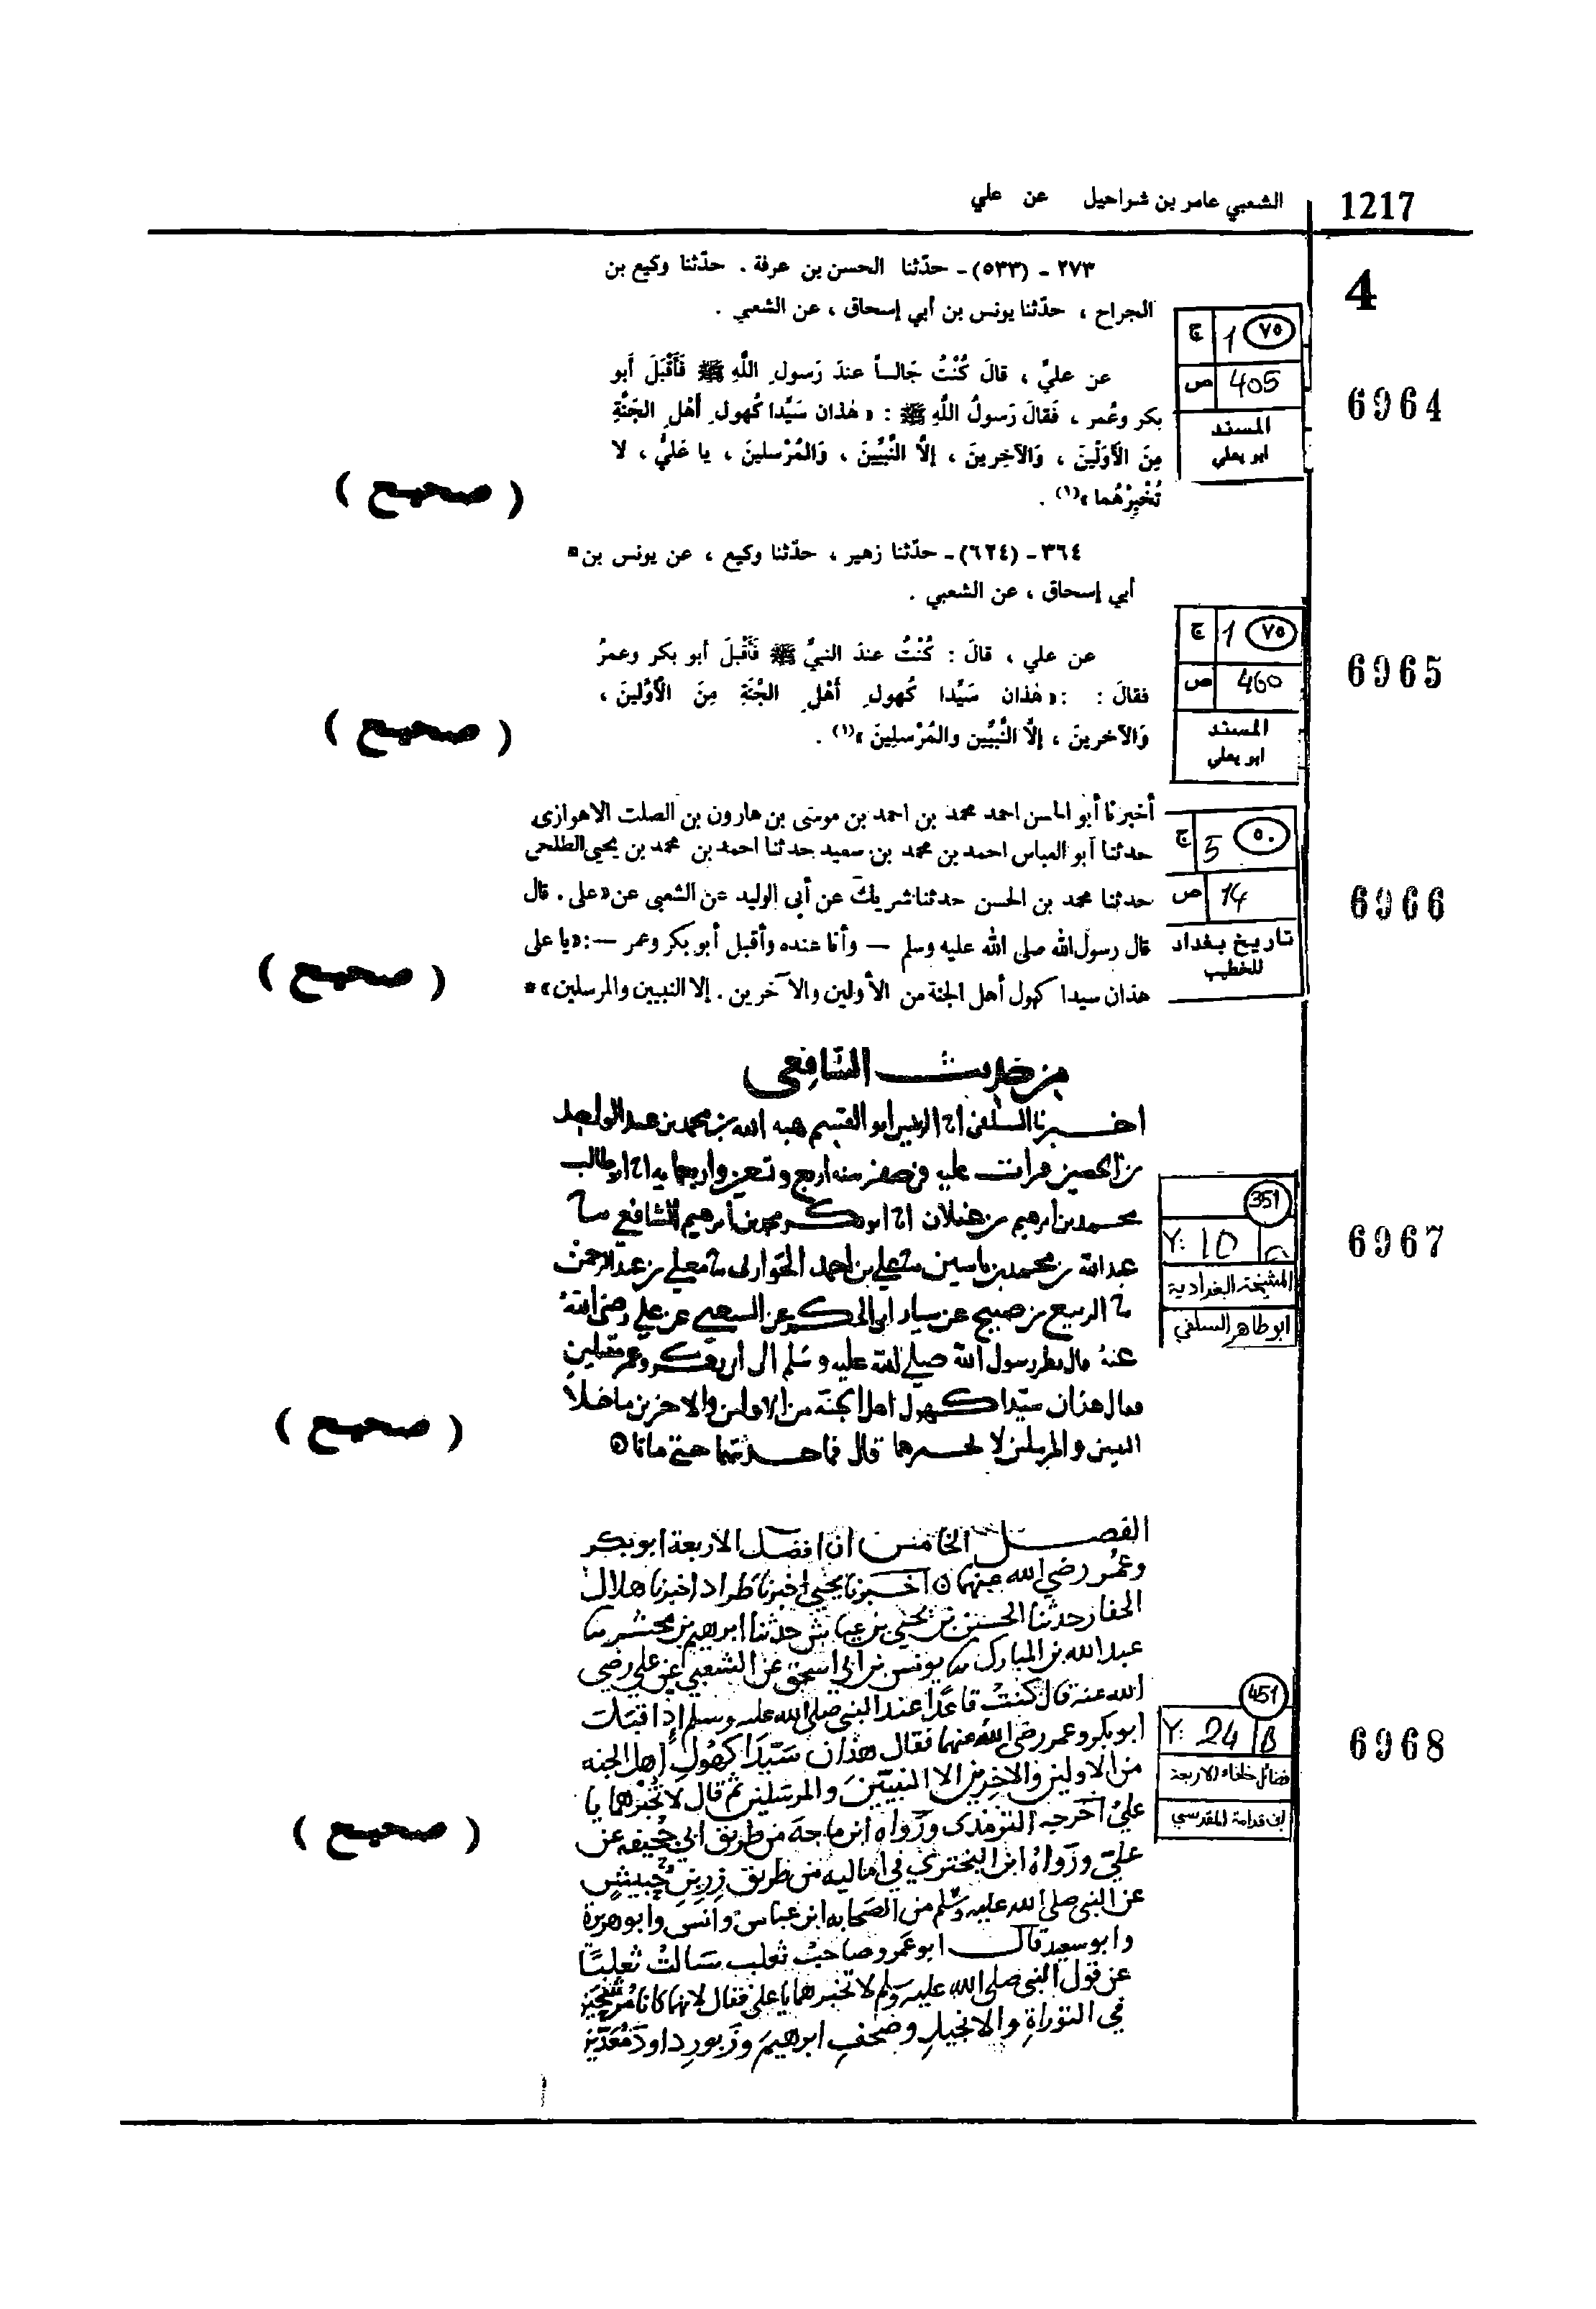 1217
الشعبي عامر بن شراحيل عن علي
4
٢٧٣ - (٥٣٣) - حدّثنا الحسن بن عرفة . حدّثنا وكيع بن
الجراح ، حدّثنا يونس بن أبي إسحاق ، عن الشعبي .
عن عليّ ، قالَ كُنْتُ جَالساً عندَ رَسولِ اللَّهِ ﷺ فَأَقْبَلَ أَبو
بكر وعُمر ، فَقالَ رَسولُ اللَّهِ ﷺ : « هٰذان سَيِّدا كُهولِ أَهْلِ الجَنَّةِ
مِنَ الأَوَّلينَ ، وَالآخِرينَ ، إلَّا النَّبيِّينَ ، وَالمُرْسلينَ ، يا عَليُّ ، لا
تُخْبِرْهُما »(١) .
( صحيح )
٧٥ 1 ج
405 ص
المسند
ابو يعلي
6964
٣٦٤ - (٦٢٤) - حدّثنا زهير ، حدّثنا وكيع ، عن يونس بن
أبي إسحاق ، عن الشعبي .
عن علي ، قالَ : كُنْتُ عندَ النبيِّ ﷺ فَأَقْبلَ أبو بكر وعمرُ
فقالَ : :« هٰذان سَيِّدا كُهولِ أَهْلِ الجَنَّةِ مِنَ الأَوَّلينَ ،
وَالآخرينَ ، إلَّا النَّبيِّين والمُرْسلِينَ »(١) .
( صحيح )
٧٥ 1 ج
460 ص
المسند
ابو يعلي
6965
أخبرنا أبو الحسن احمد محمد بن احمد بن موسى بن هارون بن الصلت الاهوازى
حدثنا أبو العباس احمد بن محمد بن سعيد حدثنا احمد بن محمد بن يحيى الطلحى
حدثنا محمد بن الحسن حدثنا شريك عن أبى الوليد عن الشعبى عن «على . قال
قال رسول الله صلى الله عليه وسلم — وأنا عنده وأقبل أبو بكر وعمر —:«يا على
هذان سيدا كهول أهل الجنة من الأولين والآخرين . إلا النبيين والمرسلين» *
( صحيح )
٥٠ 5 ج
14 ص
تاريخ بغداد
للخطيب
6966
من حديث الشافعي
اخبرنا السلفي انا الرئيس ابو القسم هبه الله بن محمد بن عبد الواحد
بن الحصين قرات عليه في صفر سنه اربع وتسعين واربعمايه انا ابو طالب
محمد بن ابرهيم بن غيلان انا ابو بكر محمد بن ابرهيم الشافعي سا
عبد الله بن محمد بن ياسين نا علي بن احمد الجواربي نا معلي بن عبد الرحمن
نا الربيع بن صبيح عن سيار ابي الحكم عن الشعبي عن علي رضي الله
عنه قال نظر رسول الله صلى الله عليه وسلم الى ابي بكر وعمر مقبلين
فقال هذان سيدا كهول اهل الجنة من الاولين والاخرين ما خلا
النبين والمرسلين لا تخبرهما قال فما حدثتهما حتى ماتا
( صحيح )
351
Y: 10
المشيخة البغدادية
ابو طاهر السلفي
6967
الفصل الخامس ان افضل الاربعة ابو بكر
وعمر رضي الله عنهما اخبرنا يحيى اخبرنا طراد اخبرنا هلال
الحفار حدثنا الحسين بن يحيى بن عياش حدثنا ابرهيم بن محشر نا
عبد الله بن المبارك نا يونس بن ابي اسحق عن الشعبي عن علي رضي
الله عنه قال كنت قاعدا عند النبي صلى الله عليه وسلم اذ اقبلت
ابو بكر وعمر رضي الله عنهما فقال هذان سيدا كهول اهل الجنه
من الاولين والاخرين الا النبيين والمرسلين ثم قال لا تخبرهما يا
علي اخرجه الترمذى ورواه ابن ماجة من طريق ابي جحيفه عن
علي ورواه ابن البختري في اماليه من طريق زر بن حبيش
عن النبي صلى الله عليه وسلم من الصحابه ابن عباس وانس وابو هريرة
وابو سعيد قال ابو عمر وصاحب ثعلب سالت ثعلبا
عن قول النبي صلى الله عليه وسلم لا تخبرهما يا علي فقال لانهما كانا
في التوراة والانجيل وصحف ابرهيم وزبور داود
( صحيح )
451
Y: 24 B
فضائل خلفاء الاربعة
ابن قدامة المقدسي
6968